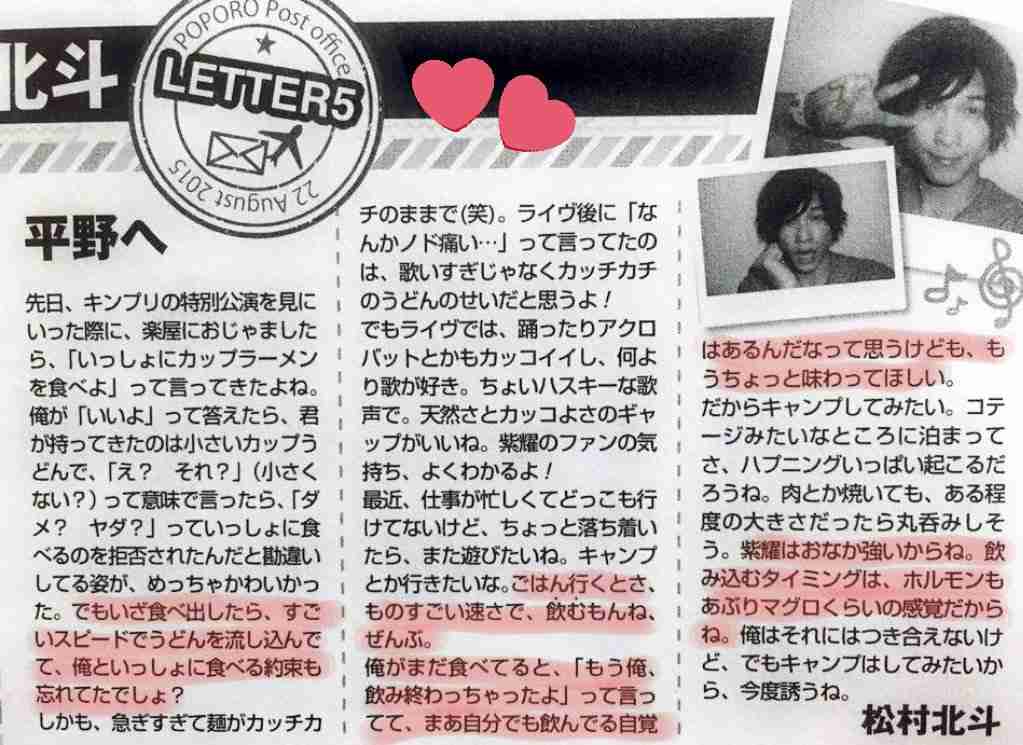 北斗
POPORO Post office
LETTER5
22 August 2015
平野へ
先日、キンプリの特別公演を見に
いった際に、楽屋におじゃました
ら、「いっしょにカップラーメン
を食べよ」って言ってきたよね。
俺が「いいよ」って答えたら、君
が持ってきたのは小さいカップう
どんで、「え？　それ？」（小さく
ない？）って意味で言ったら、「ダ
メ？　ヤダ？」っていっしょに食
べるのを拒否されたんだと勘違い
してる姿が、めっちゃかわいかっ
た。でもいざ食べ出したら、すご
いスピードでうどんを流し込んで
て、俺といっしょに食べる約束も
忘れてたでしょ？
しかも、急ぎすぎて麺がカッチカ
チのままで（笑）。ライヴ後に「な
んかノド痛い…」って言ってたの
は、歌いすぎじゃなくカッチカチ
のうどんのせいだと思うよ！
でもライヴでは、踊ったりアクロ
バットとかもカッコイイし、何よ
り歌が好き。ちょいハスキーな歌
声で。天然さとカッコよさのギャ
ップがいいね。紫耀のファンの気
持ち、よくわかるよ！
最近、仕事が忙しくてどっこも行
けてないけど、ちょっと落ち着い
たら、また遊びたいね。キャンプ
とか行きたいな。ごはん行くとさ、
ものすごい速さで、飲むもんね、
ぜんぶ。
俺がまだ食べてると、「もう俺、
飲み終わっちゃったよ」って言っ
てて、まあ自分でも飲んでる自覚
はあるんだなって思うけども、も
うちょっと味わってほしい。
だからキャンプしてみたい。コテ
ージみたいなところに泊まって
さ、ハプニングいっぱい起こるだ
ろうね。肉とか焼いても、ある程
度の大きさだったら丸呑みしそ
う。紫耀はおなか強いからね。飲
み込むタイミングは、ホルモンも
あぶりマグロくらいの感覚だから
ね。俺はそれにはつき合えないけ
ど、でもキャンプはしてみたいか
ら、今度誘うね。
松村北斗